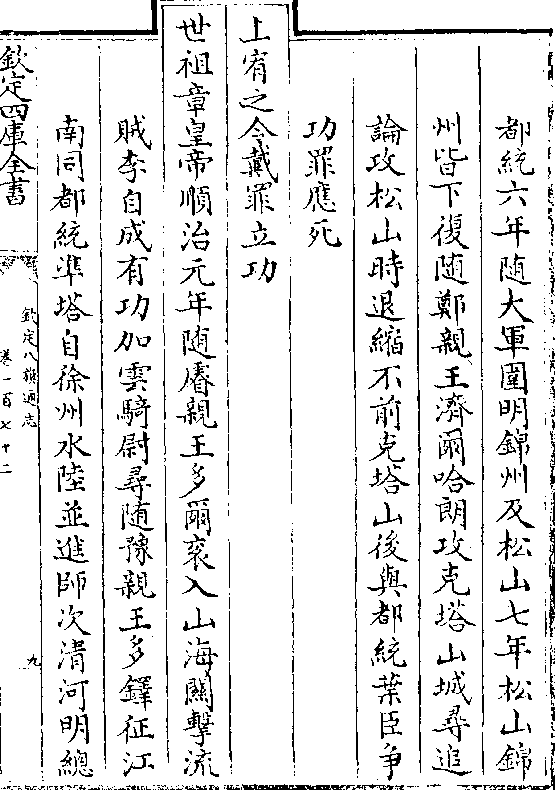 都統六年随大軍圍明錦州及松山七年松山錦
州皆下復随鄭親王濟爾哈朗攻克塔山城尋追
論攻松山時退縮不前克塔山後與都統葉臣爭
功罪應死
上宥之令戴罪立功
世祖章皇帝順治元年随睿親王多爾衮入山海關擊流
賊李自成有功加雲騎尉尋随豫親王多鐸征江
南同都統凖塔自徐州水陸並進師次清河明總
欽定四庫全書
欽定八旗通志
卷一百七十二
九